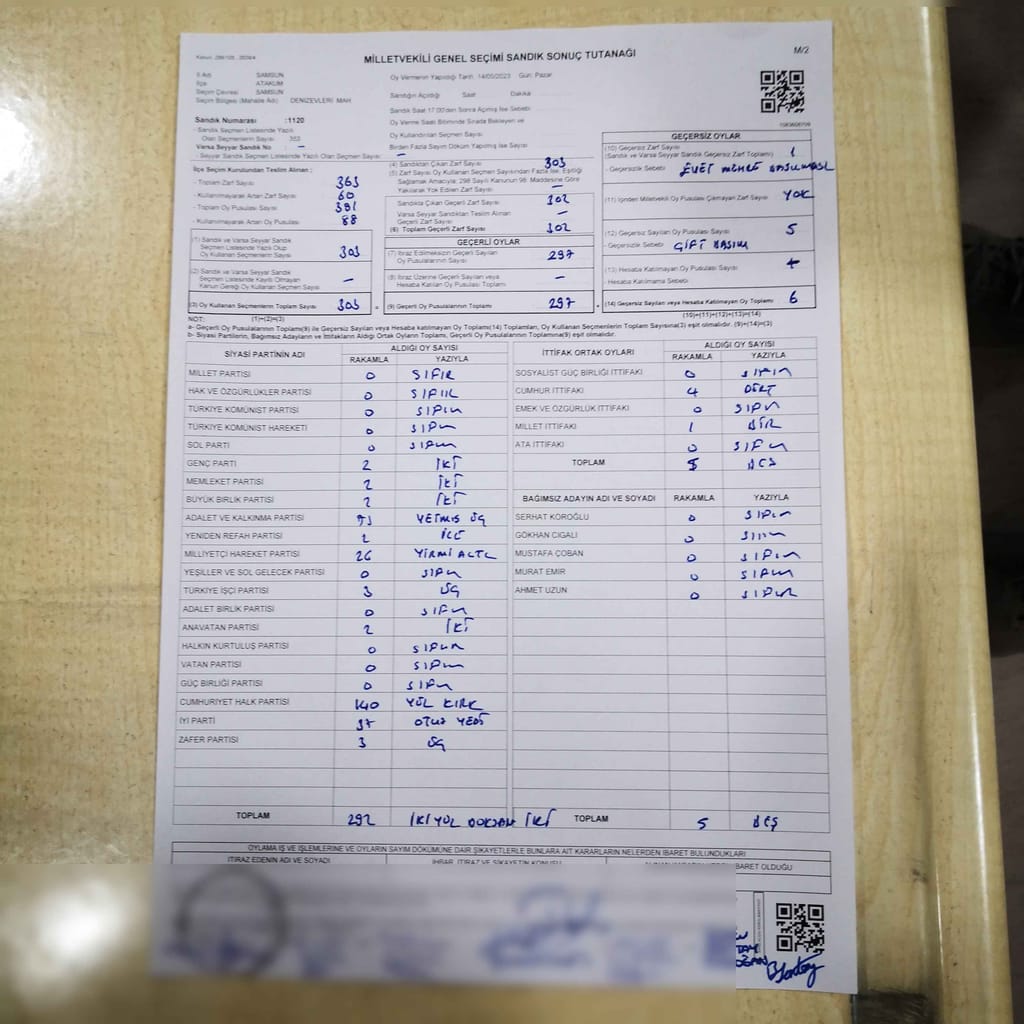 MİLLETVEKİLİ GENEL SEÇİMİ SANDIK SONUÇ TUTANAĞI
M/2
İl Adı SAMSUN
İlçe ATAKUM
Seçim Çevresi SAMSUN
Seçim Bölgesi (Mahalle Adı) DENİZEVLERİ MAH.
Oy Vermenin Yapıldığı Tarih 14/05/2023 Gün: Pazar
Sandığın Açıldığı Saat Dakika
Sandık Saat 17:00'den Sonra Açılmış İse Sebebi
Oy Verme Saati Bitiminde Sırada Bekleyen ve
Oy Kullandırılan Seçmen Sayısı
Birden Fazla Sayım Döküm Yapılmış İse Sayısı
Sandık Numarası :1120
- Sandık Seçmen Listesinde Yazılı
Olan Seçmenlerin Sayısı 353
Varsa Seyyar Sandık No –
- Seyyar Sandık Seçmen Listesinde Yazılı Olan Seçmen Sayısı –
İlçe Seçim Kurulundan Teslim Alınan :
- Toplam Zarf Sayısı 363
- Kullanılmayarak Artan Zarf Sayısı 60
- Toplam Oy Pusulası 391
- Kullanılmayarak Artan Oy Pusulası 88
(1) Sandık ve Varsa Seyyar Sandık
Seçmen Listesinde Yazılı Olup
Oy Kullanan Seçmenlerin Sayısı 303
(2) Sandık ve Varsa Seyyar Sandık
Seçmen Listesinde Kayıtlı Olmayan
Kanun Gereği Oy Kullanan Seçmen Sayısı –
(3) Oy Kullanan Seçmenlerin Toplam Sayısı 303 =
(1)+(2)=(3)
(4) Sandıktan Çıkan Zarf Sayısı 303
(5) Zarf Sayısı Oy Kullanan Seçmen Sayısından Fazla İse, Eşitliği
Sağlamak Amacıyla; 298 Sayılı Kanunun 98. Maddesine Göre
Yakılarak Yok Edilen Zarf Sayısı –
Sandıkta Çıkan Geçerli Zarf Sayısı 302
Varsa Seyyar Sandıktan Teslim Alınan
Geçerli Zarf Sayısı –
(6) Toplam Geçerli Zarf Sayısı 302
GEÇERLİ OYLAR
(7) İtiraz Edilmeksizin Geçerli Sayılan
Oy Pusulalarının Toplamı 297
(8) İtiraz Üzerine Geçerli Sayılan veya
Hesaba Katılan Oy Pusulalarının Toplamı –
(9) Geçerli Oy Pusulalarının Toplamı 297 +
GEÇERSİZ OYLAR
(10) Geçersiz Zarf Sayısı
(Sandık ve Varsa Seyyar Sandık Geçersiz Zarf Toplamı) 1
- Geçersizlik Sebebi EVET MÜHRÜ BASILMASI
(11) İçinden Milletvekili Oy Pusulası Çıkmayan Zarf Sayısı YOK
(12) Geçersiz Sayılan Oy Pusulası Sayısı 5
- Geçersizlik Sebebi ÇİFT BASIM
(13) Hesaba Katılmayan Oy Pusulası Sayısı
Hesaba Katılmama Sebebi
(14) Geçersiz Sayılan veya Hesaba Katılmayan Oy Toplamı 6
(10)+(11)+(12)+(13)=(14)
NOT:
a- Geçerli Oy Pusulalarının Toplamı(9) ile Geçersiz Sayılan veya Hesaba katılmayan Oy Toplamı(14) Toplamları, Oy Kullanan Seçmenlerin Toplam Sayısına(3) eşit olmalıdır. (9)+(14)=(3)
b- Siyasi Partilerin, Bağımsız Adayların ve İttifakların Aldığı Ortak Oyların Toplamı, Geçerli Oy Pusulalarının Toplamına(9) eşit olmalıdır.
SİYASİ PARTİNİN ADI ALDIĞI OY SAYISI
RAKAMLA YAZIYLA
MİLLET PARTİSİ 0 SIFIR
HAK VE ÖZGÜRLÜKLER PARTİSİ 0 SIFIR
TÜRKİYE KOMÜNİST PARTİSİ 0 SIFIR
TÜRKİYE KOMÜNİST HAREKETİ 0 SIFIR
SOL PARTİ 0 SIFIR
GENÇ PARTİ 2 İKİ
MEMLEKET PARTİSİ 2 İKİ
BÜYÜK BİRLİK PARTİSİ 2 İKİ
ADALET VE KALKINMA PARTİSİ 73 YETMİŞ ÜÇ
YENİDEN REFAH PARTİSİ 2 İKİ
MİLLİYETÇİ HAREKET PARTİSİ 26 YİRMİ ALTI
YEŞİLLER VE SOL GELECEK PARTİSİ 0 SIFIR
TÜRKİYE İŞÇİ PARTİSİ 3 ÜÇ
ADALET BİRLİK PARTİSİ 0 SIFIR
ANAVATAN PARTİSİ 2 İKİ
HALKIN KURTULUŞ PARTİSİ 0 SIFIR
VATAN PARTİSİ 0 SIFIR
GÜÇ BİRLİĞİ PARTİSİ 0 SIFIR
CUMHURİYET HALK PARTİSİ 140 YÜZ KIRK
İYİ PARTİ 37 OTUZ YEDİ
ZAFER PARTİSİ 3 ÜÇ
TOPLAM 292 İKİ YÜZ DOKSAN İKİ
İTTİFAK ORTAK OYLARI ALDIĞI OY SAYISI
RAKAMLA YAZIYLA
SOSYALİST GÜÇ BİRLİĞİ İTTİFAKI 0 SIFIR
CUMHUR İTTİFAKI 4 DÖRT
EMEK VE ÖZGÜRLÜK İTTİFAKI 0 SIFIR
MİLLET İTTİFAKI 1 BİR
ATA İTTİFAKI 0 SIFIR
TOPLAM 5 BEŞ
BAĞIMSIZ ADAYIN ADI VE SOYADI RAKAMLA YAZIYLA
SERHAT KÖROĞLU 0 SIFIR
GÖKHAN CIGALI 0 SIFIR
MUSTAFA ÇOBAN 0 SIFIR
MURAT EMİR 0 SIFIR
AHMET UZUN 0 SIFIR
TOPLAM 5 BEŞ
OYLAMA İŞ VE İŞLEMLERİNE VE OYLARIN SAYIM DÖKÜMÜNE DAİR ŞİKAYETLERLE BUNLARA AİT KARARLARIN NELERDEN İBARET BULUNDUKLARI
İTİRAZ EDENİN ADI VE SOYADI İHBAR, İTİRAZ VE ŞİKAYETİN KONUSU İBARET OLDUĞU